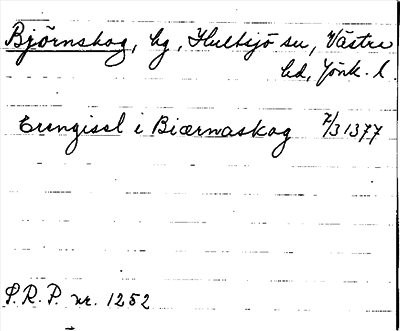 Björnskog, by, Hultsjö sn, Västra
hd, Jönk. l.
Erengisel i Biærnaskog 7/3 1377
S.R.P. nr. 1252